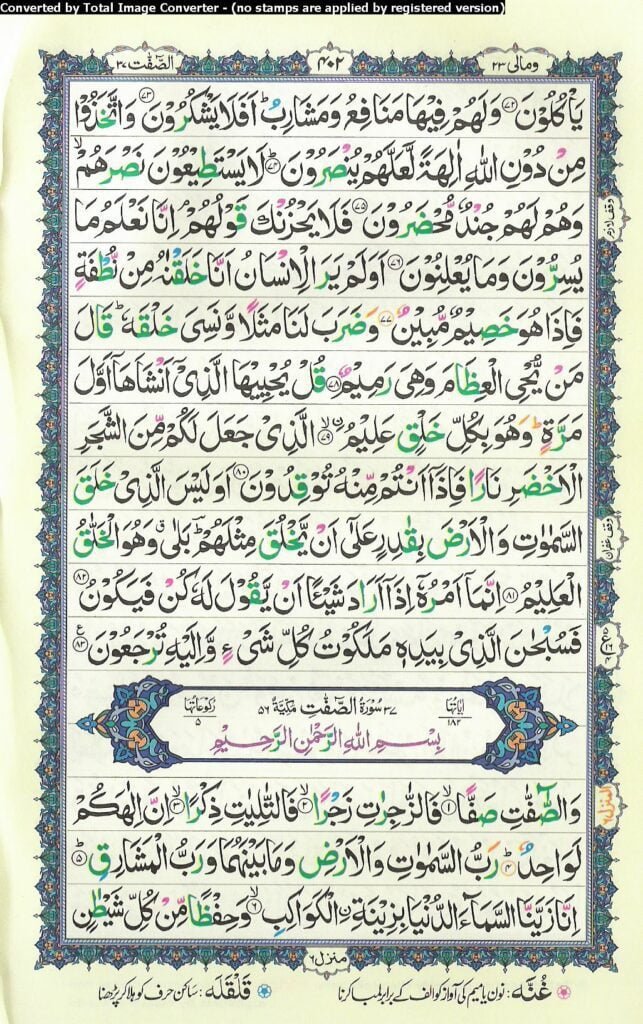 Converted by Total Image Converter - (no stamps are applied by registered version)
ومالی ۲۳
۴۰۲
الصّٰٓفّٰت ۳۷
يَاْكُلُوْنَ ۷۲ وَلَهُمْ فِيْهَا مَنَافِعُ وَمَشَارِبُ ؕ اَفَلَا يَشْكُرُوْنَ ۷۳ وَاتَّخَذُوْا
مِنْ دُوْنِ اللّٰهِ اٰلِهَةً لَّعَلَّهُمْ يُنْصَرُوْنَ ۷۴ؕ لَا يَسْتَطِيْعُوْنَ نَصْرَهُمْ ۙ
وَهُمْ لَهُمْ جُنْدٌ مُّحْضَرُوْنَ ۷۵ فَلَا يَحْزُنْكَ قَوْلُهُمْ ۘ اِنَّا نَعْلَمُ مَا
وقف لازم
يُسِرُّوْنَ وَمَا يُعْلِنُوْنَ ۷۶ اَوَلَمْ يَرَ الْاِنْسَانُ اَنَّا خَلَقْنٰهُ مِنْ نُّطْفَةٍ
فَاِذَا هُوَ خَصِيْمٌ مُّبِيْنٌ ۷۷ وَضَرَبَ لَنَا مَثَلًا وَّنَسِىَ خَلْقَهٗ ؕ قَالَ
مَنْ يُّحْىِ الْعِظَامَ وَهِىَ رَمِيْمٌ ۷۸ قُلْ يُحْيِيْهَا الَّذِىْٓ اَنْشَاَهَآ اَوَّلَ
مَرَّةٍ ؕ وَهُوَ بِكُلِّ خَلْقٍ عَلِيْمُ ۨ ۷۹ۙ الَّذِىْ جَعَلَ لَكُمْ مِّنَ الشَّجَرِ
الْاَخْضَرِ نَارًا فَاِذَآ اَنْتُمْ مِّنْهُ تُوْقِدُوْنَ ۸۰ اَوَلَيْسَ الَّذِىْ خَلَقَ
السَّمٰوٰتِ وَالْاَرْضَ بِقٰدِرٍ عَلٰٓى اَنْ يَّخْلُقَ مِثْلَهُمْ ؔؕ بَلٰى ۗ وَهُوَ الْخَلّٰقُ
وقف غفران
الْعَلِيْمُ ۸۱ اِنَّمَآ اَمْرُهٗٓ اِذَآ اَرَادَ شَيْـًٔا اَنْ يَّقُوْلَ لَهٗ كُنْ فَيَكُوْنُ ۸۲
فَسُبْحٰنَ الَّذِىْ بِيَدِهٖ مَلَكُوْتُ كُلِّ شَىْءٍ وَّاِلَيْهِ تُرْجَعُوْنَ ۸۳ ع
اٰيَاتُهَا ۱۸۲
۳۷ سُوْرَةُ الصّٰٓفّٰتِ مَكِّيَّةٌ ۵۶
رُكُوْعَاتُهَا ۵
بِسْمِ اللّٰهِ الرَّحْمٰنِ الرَّحِيْمِ
وَالصّٰٓفّٰتِ صَفًّا ۱ۙ فَالزّٰجِرٰتِ زَجْرًا ۲ۙ فَالتّٰلِيٰتِ ذِكْرًا ۳ۙ اِنَّ اِلٰهَكُمْ
المنزل ۶
لَوَاحِدٌ ۴ؕ رَبُّ السَّمٰوٰتِ وَالْاَرْضِ وَمَا بَيْنَهُمَا وَرَبُّ الْمَشَارِقِ ۵ؕ
اِنَّا زَيَّنَّا السَّمَآءَ الدُّنْيَا بِزِيْنَةِ ۨ الْكَوَاكِبِ ۶ۙ وَحِفْظًا مِّنْ كُلِّ شَيْطٰنٍ
منزل ۶
غُنَّه : نون یا میم کی آواز کو الف کے برابر لمبا کرنا
قَلْقَلَه : ساکن حرف کو ہلا کر پڑھنا